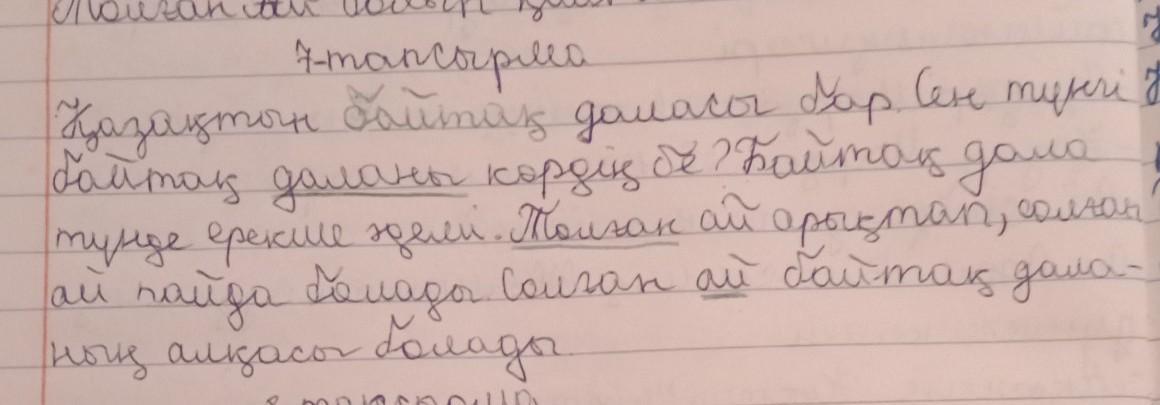 Толған ай
7-тапсырма
Қазақтын байтақ даласы бар. Сен түнгі
байтақ даланы көрдің бе? Байтақ дала
түнде ерекше әдемі. Толған ай арықтап, солған
ай пайда болады. Солған ай байтақ дала-
ның алқасы болады.